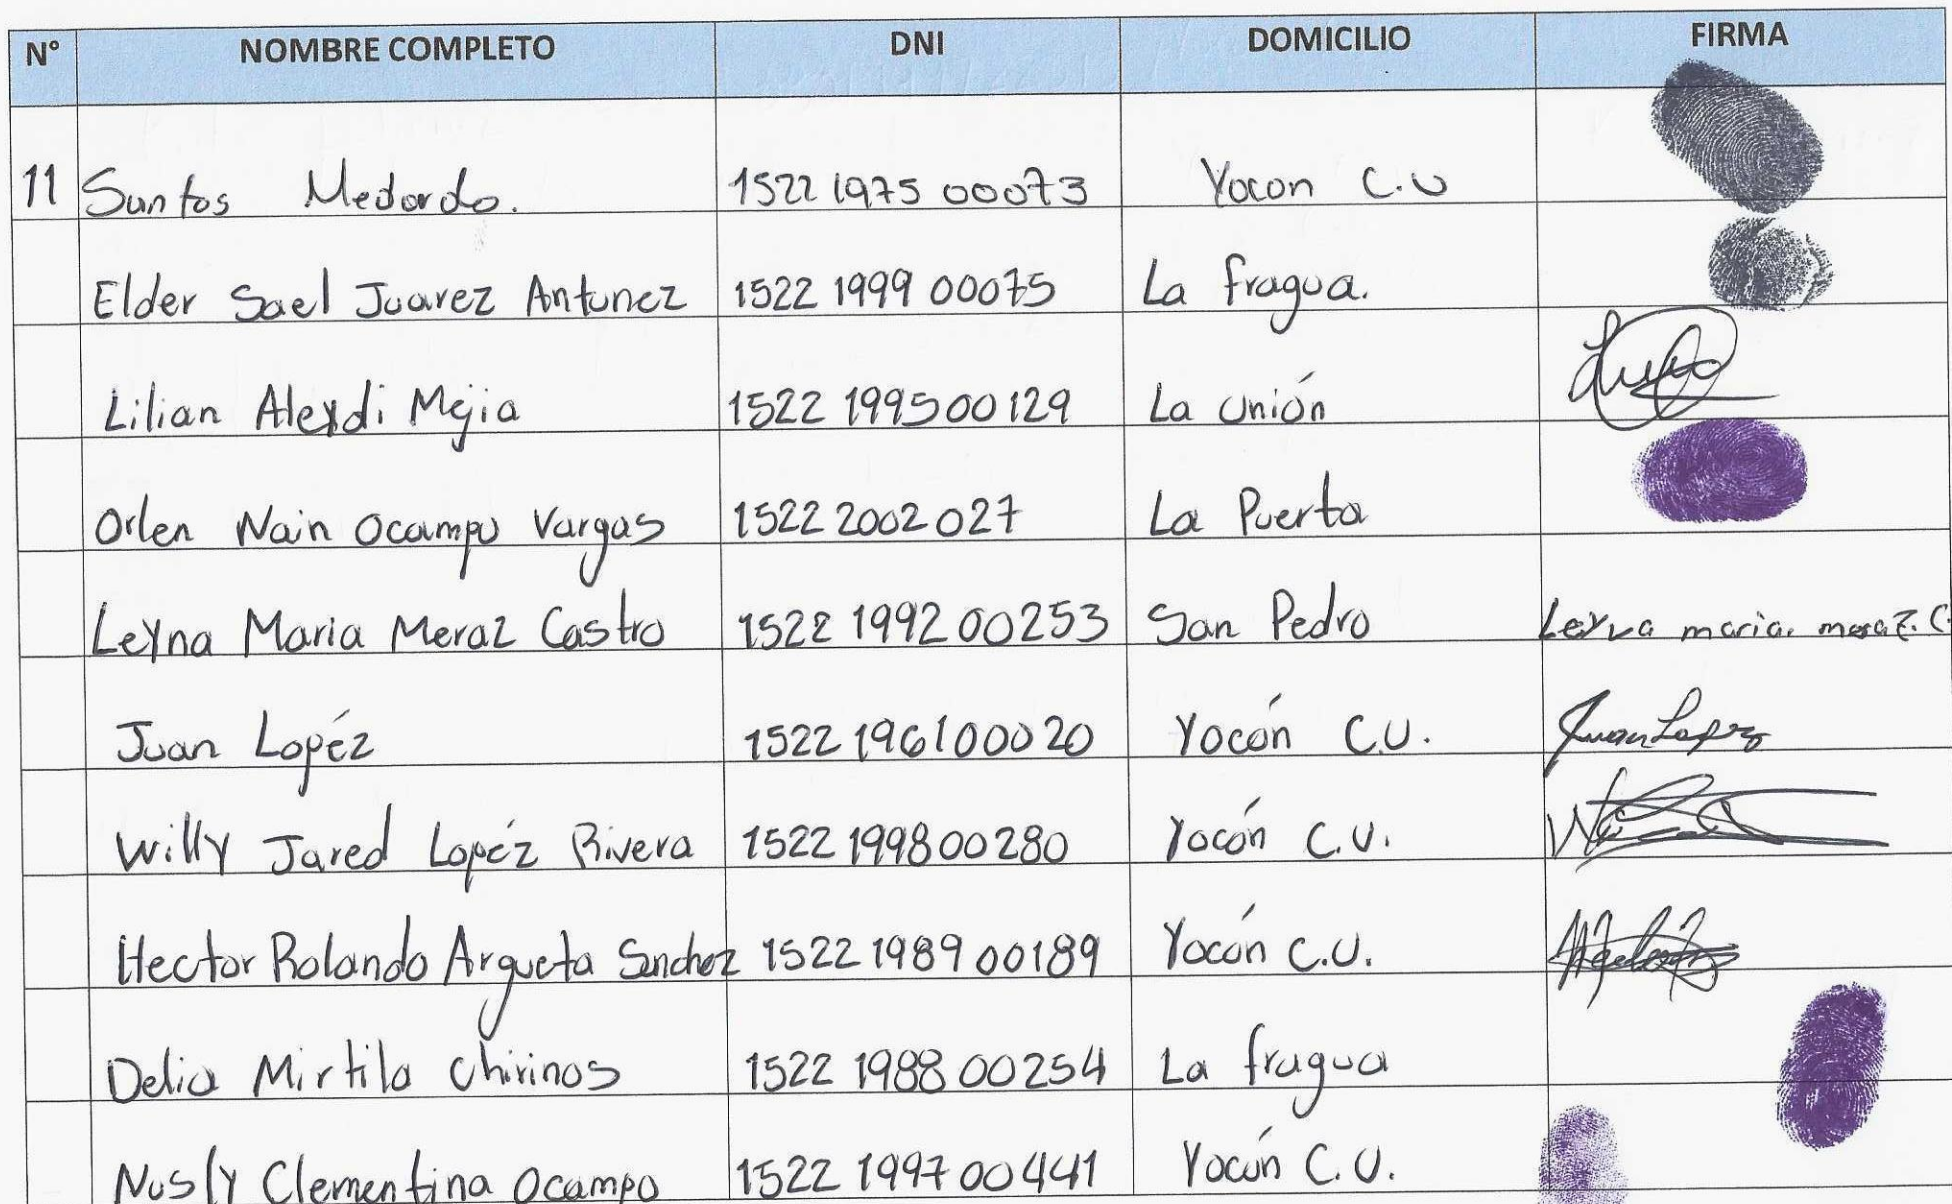 N° NOMBRE COMPLETO DNI DOMICILIO FIRMA
11 Suntos Medardo. 1522 1975 00073 Yocon C.U
Elder Sael Juarez Antunez 1522 1999 00075 La fragua.
Lilian Alexdi Mejia 1522 1995 00129 La Unión
Orlen Nain Ocampo Vargas 1522 2002 027 La Puerta
Leyna Maria Meraz Castro 1522 1992 00253 San Pedro Leyva maria. meraz. C.
Juan Lopéz 1522 1961 00020 Yocón C.U. Juan Lopez
Willy Jared Lopéz Rivera 1522 1998 00280 Yocón C.U.
Hector Rolando Argueta Sanchez 1522 1989 00189 Yocón C.U.
Delia Mirtila Chirinos 1522 1988 00254 La fragua
Nusly Clementina Ocampo 1522 1997 00441 Yocón C.U.